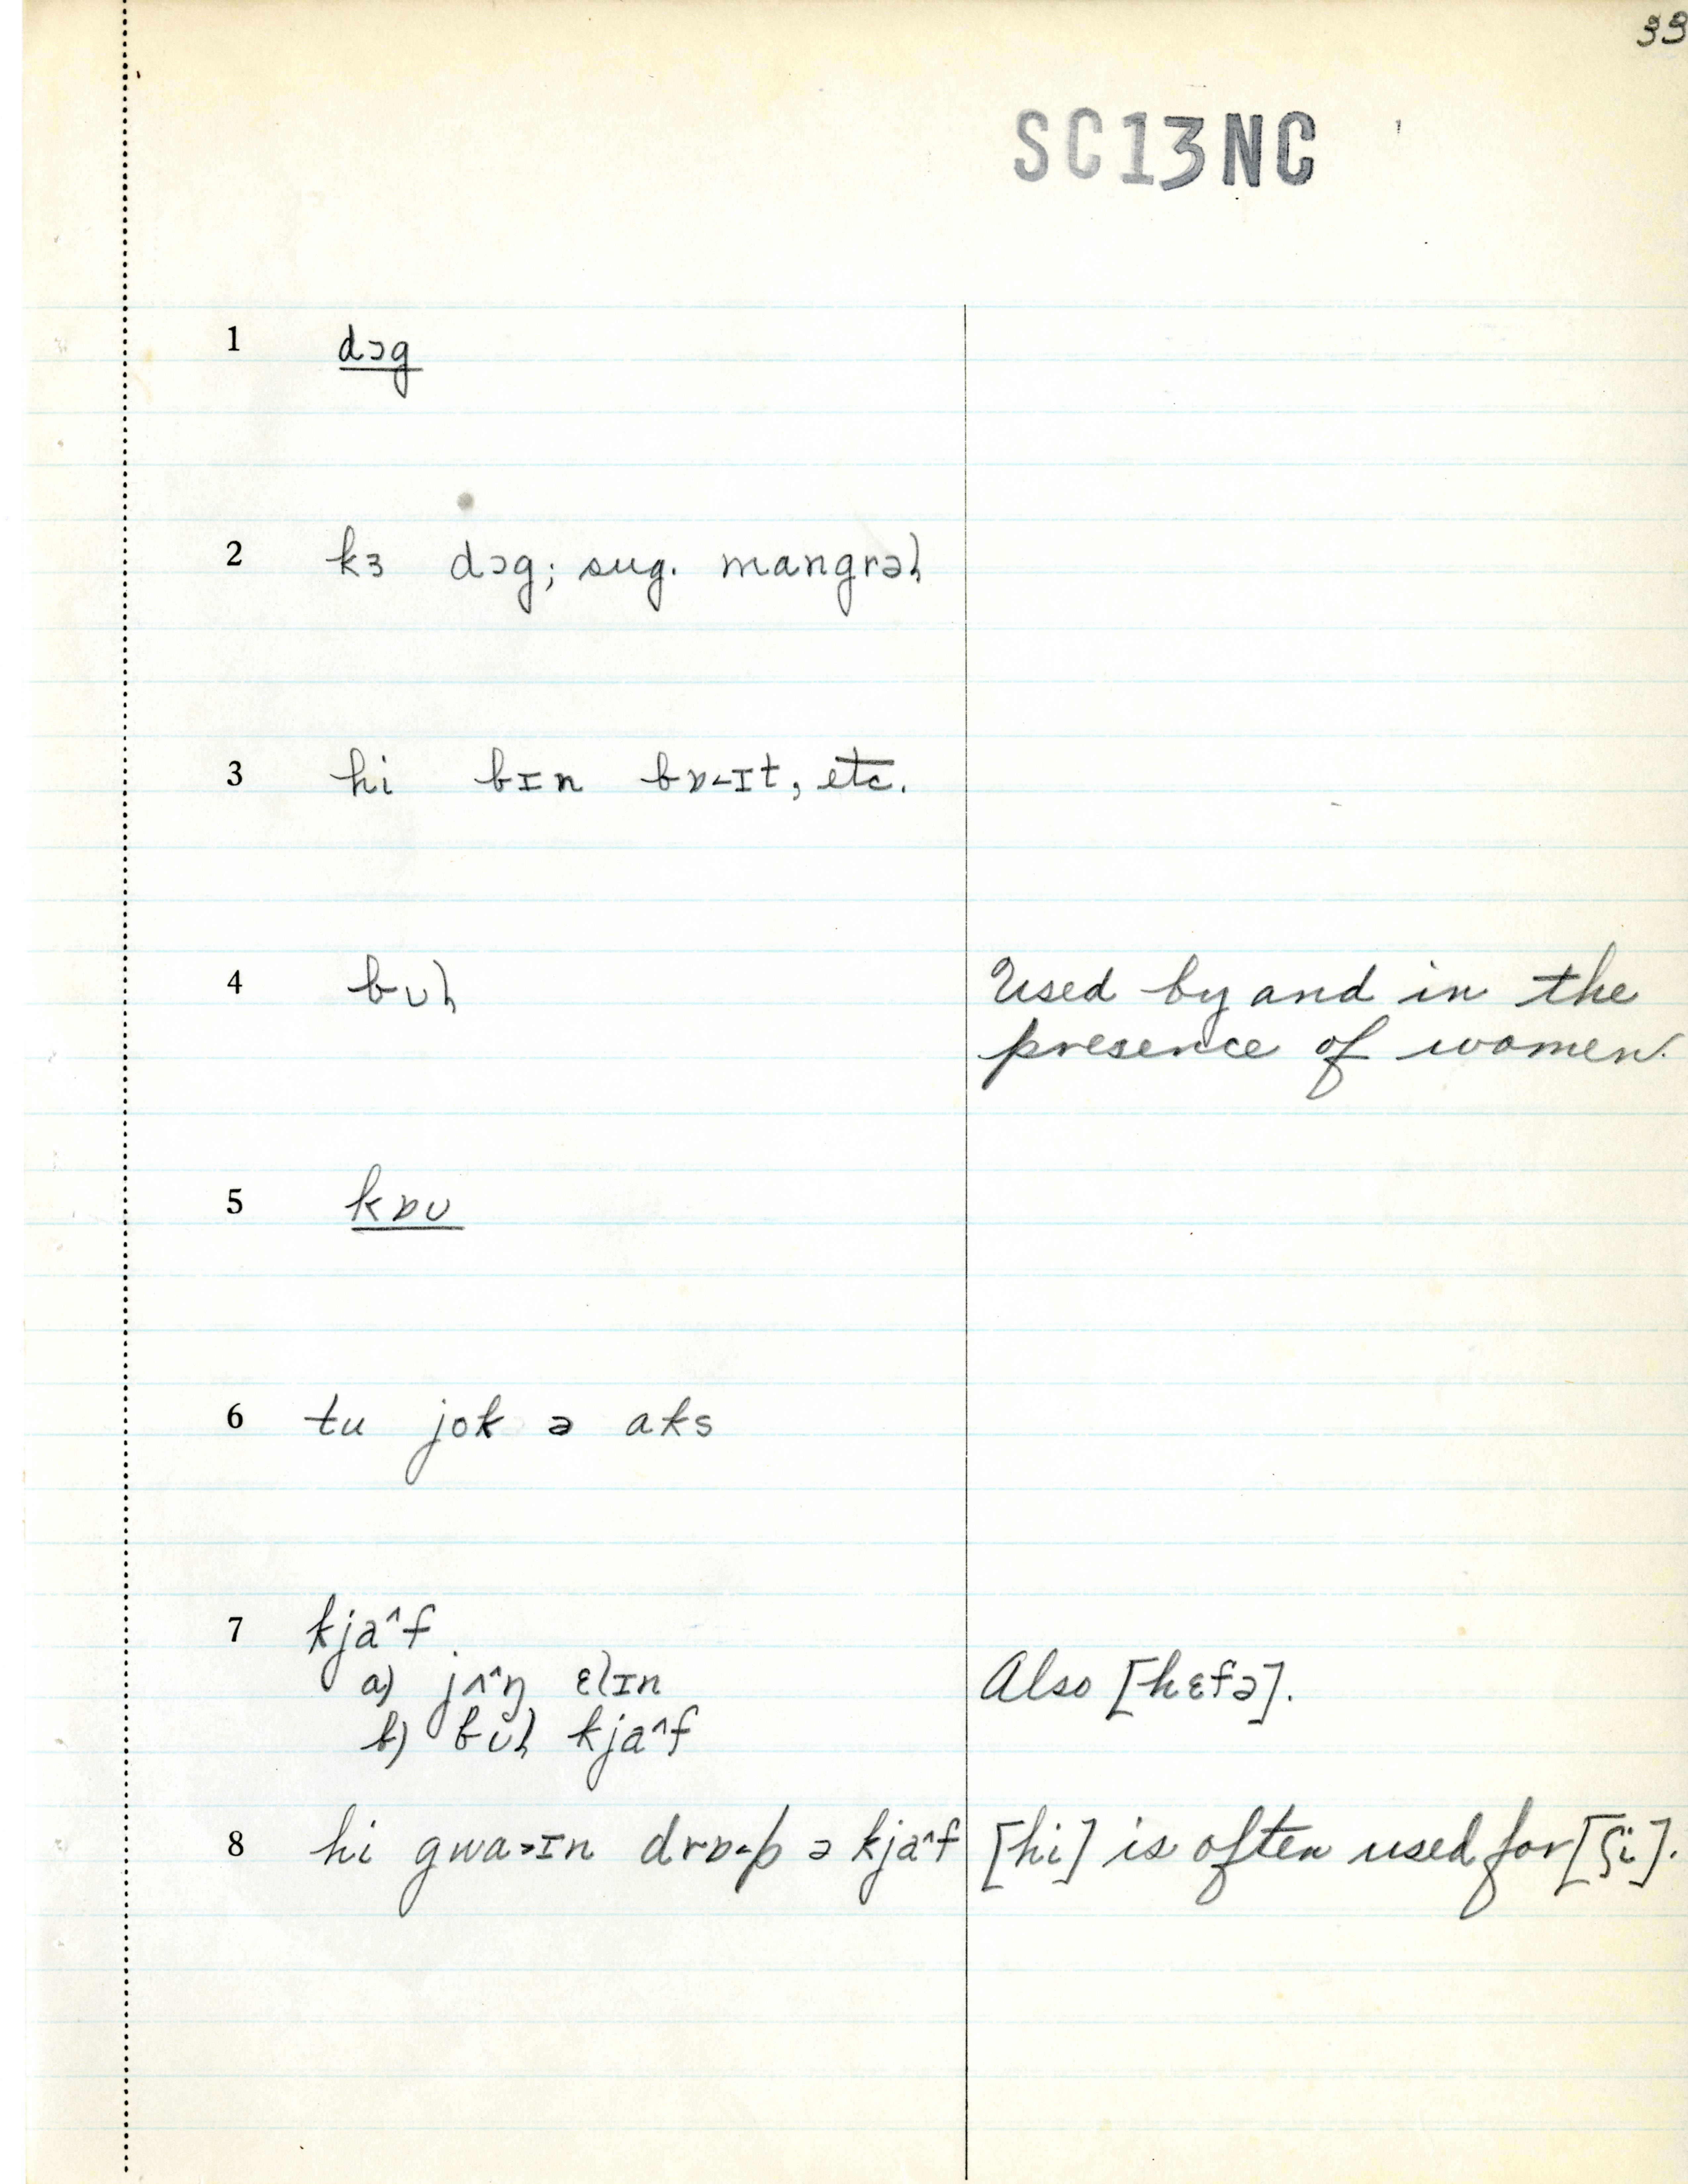 33
SC13NC
1 dɔg
2 kɜ dɔg; sug. mangrəl
3 hi bɪn bɒ˂ɪt, etc.
4 bʊl Used by and in the
presence of women.
5 kɒʊ
6 tu jok ə aks
7 kja^f
a) jʌ^ŋ ɛlɪn Also [hɛfə].
b) bʊl kja^f
8 hi gwa˃ɪn drɒ˂p ə kja^f [hi] is often used for [ʃi].